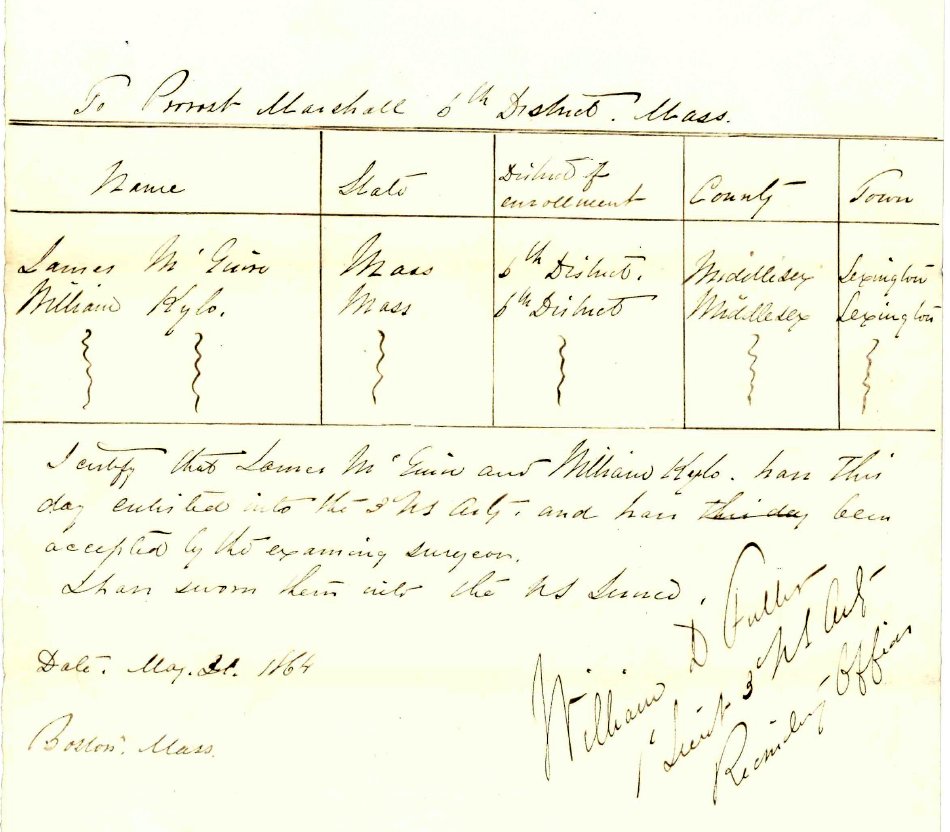 To Provost Marshall 6th District. Mass.
Name State District of enrollment County Town
James McGuire Mass 6th District. Middlesex Lexington
William Kylo. Mass 6th District Middlesex Lexington
I certify that James McGuire and William Kylo. have this
day enlisted into the 3d US Arty. and have this day been
accepted by the examining surgeon.
I have sworn them into the US Service.
William D Fuller
1st Lieut 3d US Arty
Recruiting Officer
Date. May. 1864
Boston. Mass.